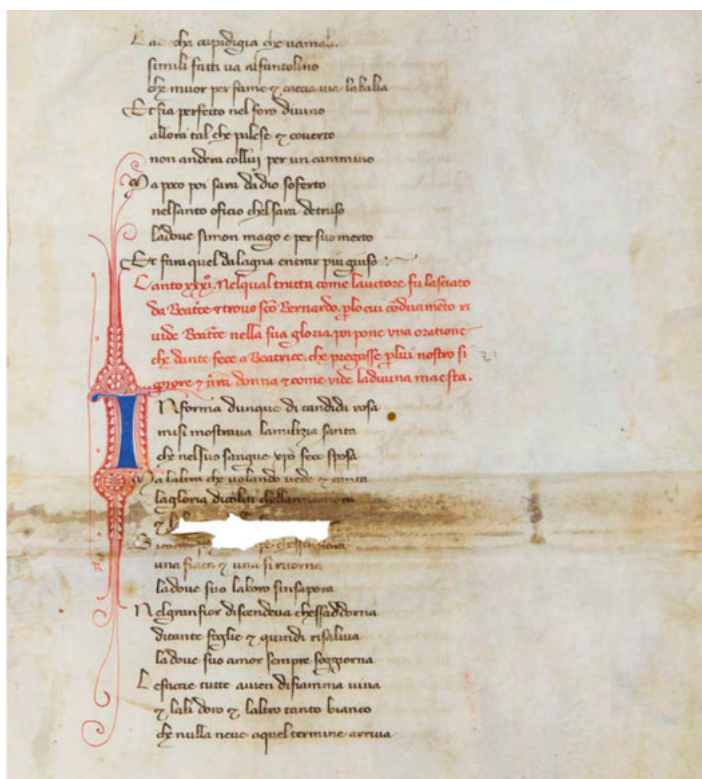 La che cupidigia che vamalia
simili fatti va alfantolino
che muor per fame & caccia via labalia
Et fia perfecto nel foro divino
allora tal che palese & coverto
non andera collui per un cammino
Ma poco poi sara dadio soferto
nelsanto oficio chel sara detruso
ladove simon mago e per suo merto
Et fara quel dalagna entrar piu giuso
Canto xxxi. Nelqual tratta come lauctore fu lasciato
da Beatrice & trovo sco Bernardo. plo cui coducimento ri
vide Beatrice nella sua gloria. poi pone una oratione
che dante fece a Beatrice. che pregasse plui nostro si
gnore & nra donna & come vide la divina maesta.
IN forma dunque di candida rosa
misi mostrava lamilizia santa
che nelsuo sangue xpo fece sposa
Ma laltra che volando vede & canta
lagloria dicolui chellannamora
& la
una fiata & una siritorna
ladove suo laboro sinsapora
Nelgranfior discendeva chessaddorna
ditante foglie & quindi risaliva
ladove suo amor sempre soggiorna
Lefaccie tutte avien difiamma viva
& lali doro & laltro tanto bianco
che nulla neve aquel termine arriva